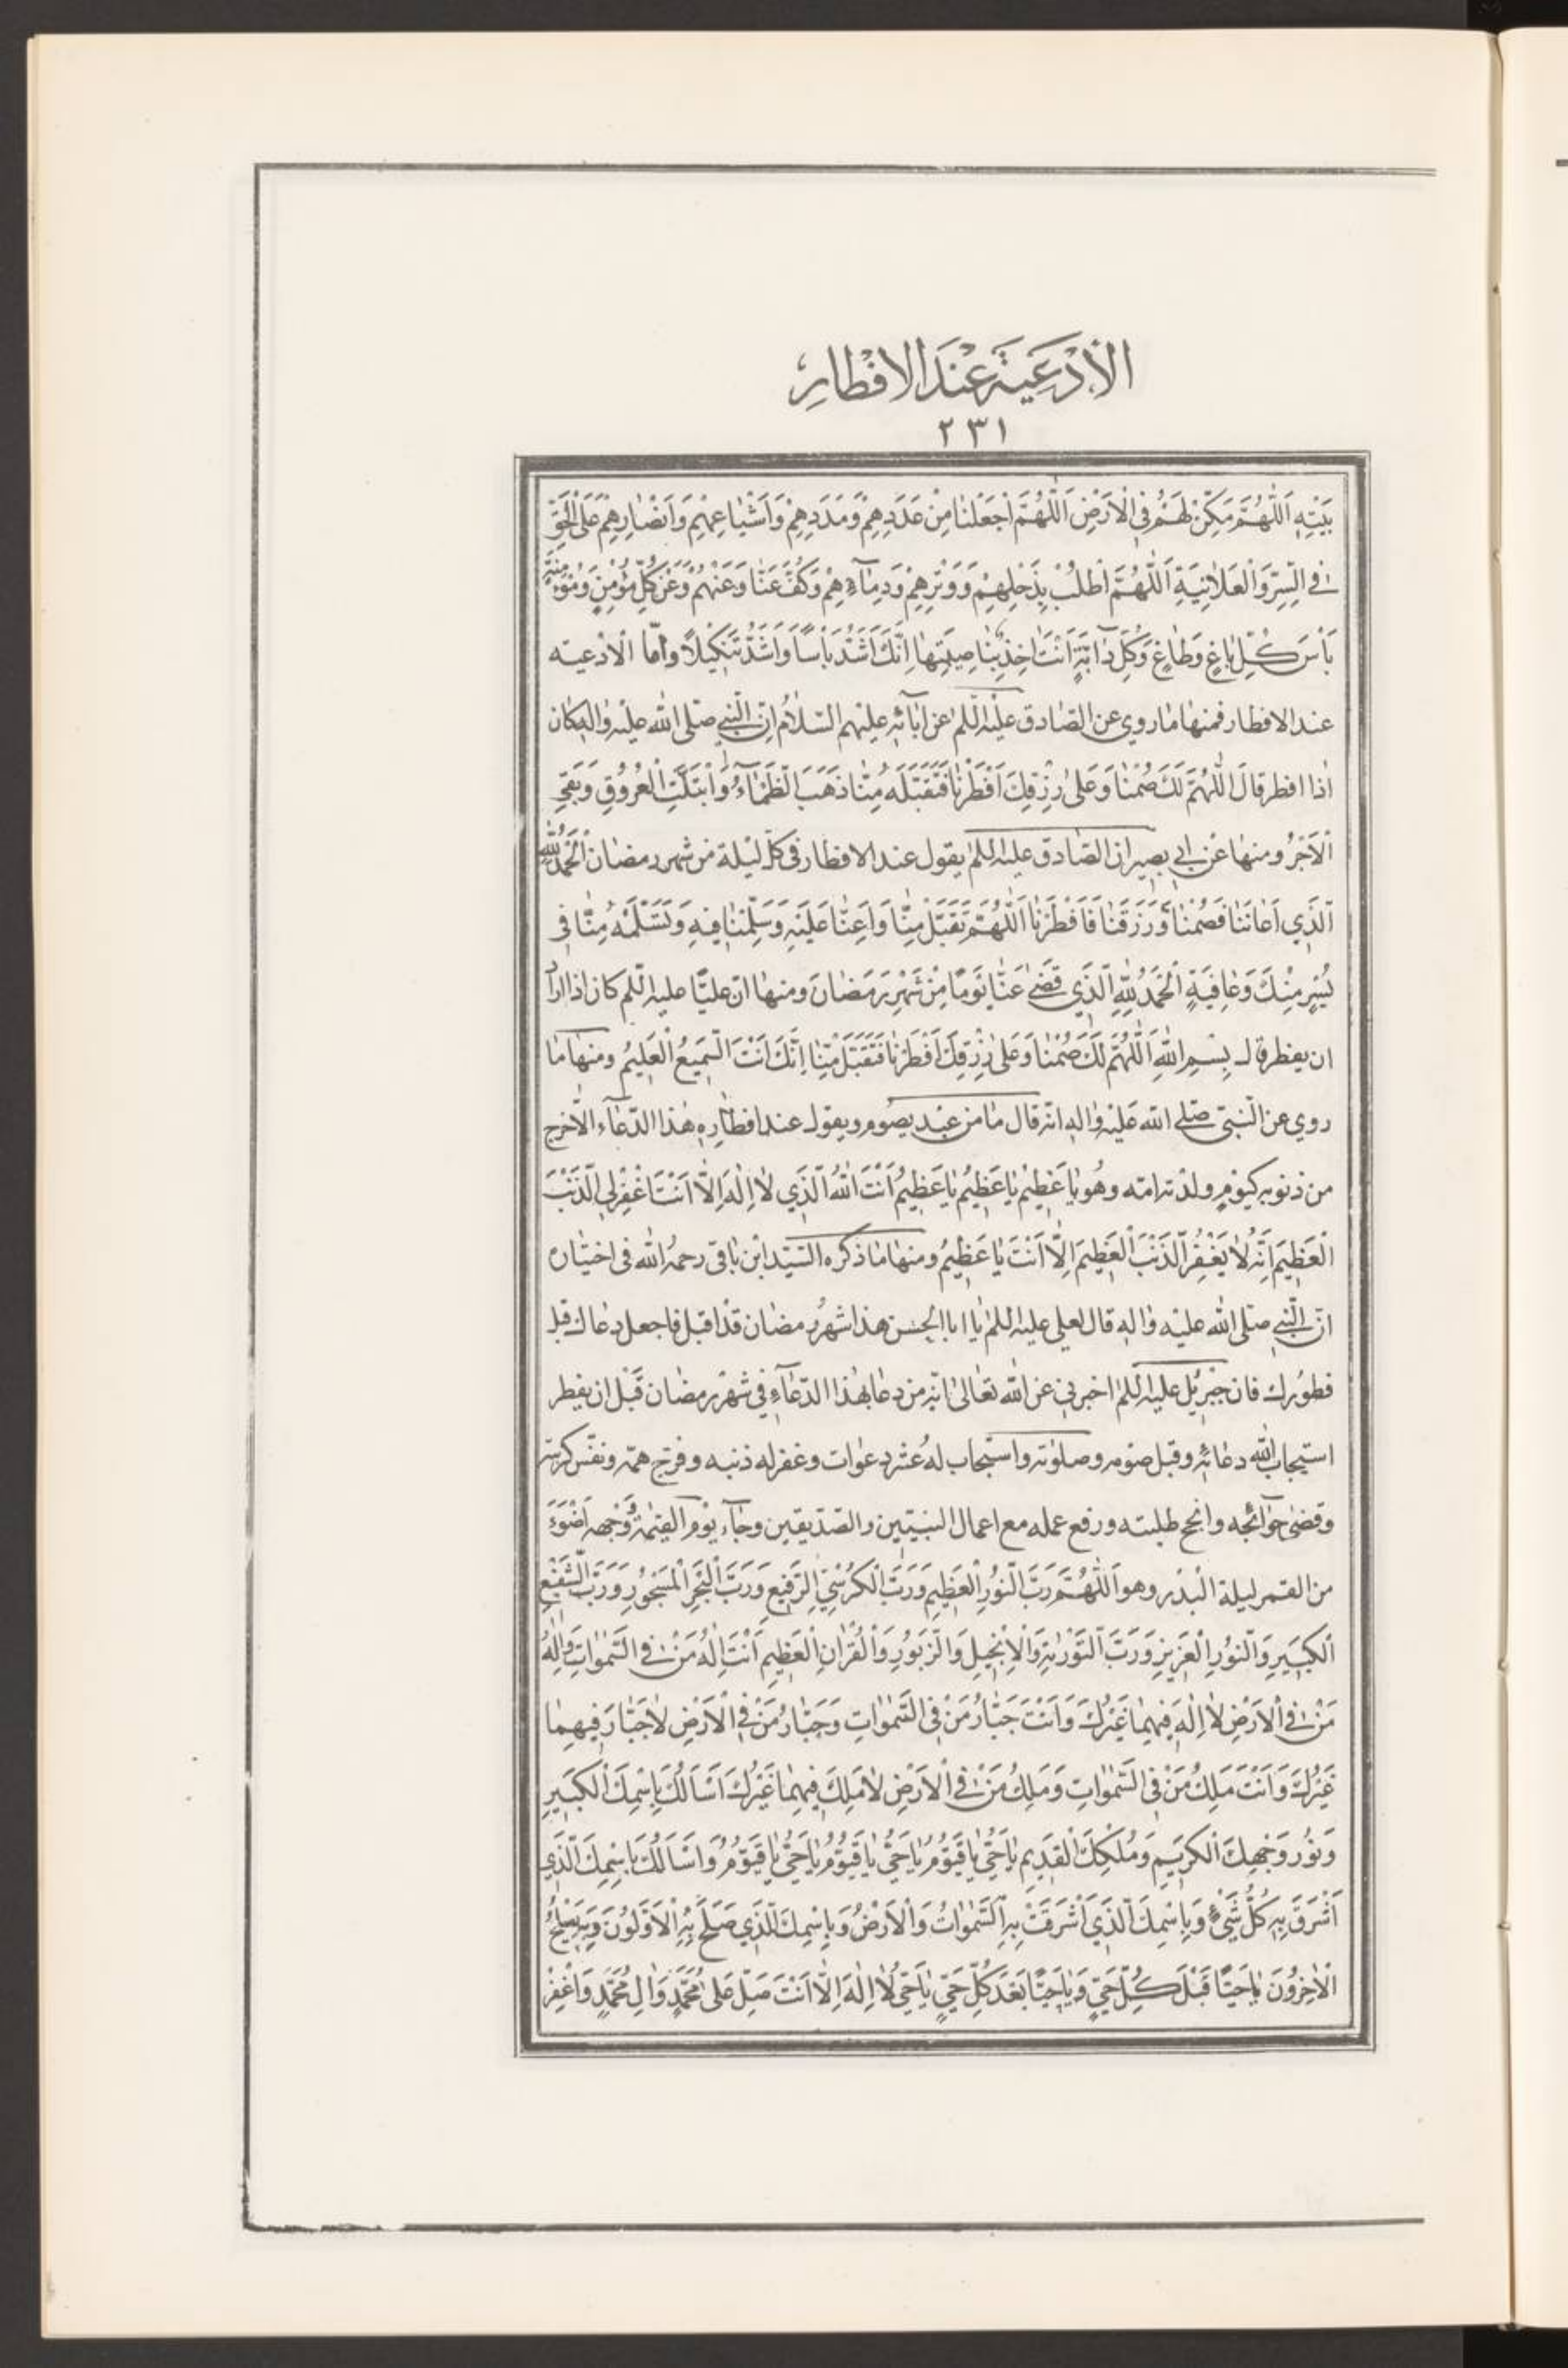 الْأَدْعِيَةُ عِنْدَ الْإِفْطَارِ
٢٣١
بَيْتِهِ اَللّٰهُمَّ مَكِّنْ لَهُمْ فِي الْاَرْضِ اَللّٰهُمَّ اجْعَلْنٰا مِنْ عَدَدِهِمْ وَمَدَدِهِمْ وَاَشْيٰاعِهِمْ وَاَنْصٰارِهِمْ عَلَى الْحَقِّ
فِي السِّرِّ وَالْعَلاٰنِيَةِ اَللّٰهُمَّ اطْلُبْ بِذَحْلِهِمْ وَوَتْرِهِمْ وَدِمٰآءِهِمْ وَكُفَّ عَنّٰا وَعَنْهُمْ وَعَنْ كُلِّ مُؤْمِنٍ وَمُؤْمِنَةٍ
بَأْسَ كُلِّ بٰاغٍ وَطٰاغٍ وَكُلِّ دٰآبَّةٍ اَنْتَ اٰخِذٌ بِنٰاصِيَتِهٰا اِنَّكَ اَشَدُّ بَأْسًا وَاَشَدُّ تَنْكِيلًا وامّا الادعيته
عند الافطار فمنها ما روي عن الصّادق عليه السّلم عن اٰبآئه عليهم السّلام انّ النّبي صلى الله عليه واله كان
اذا افطر قال اَللّٰهُمَّ لَكَ صُمْنٰا وَعَلىٰ رِزْقِكَ اَفْطَرْنٰا فَتَقَبَّلَهُ مِنّٰا ذَهَبَ الظَّمٰآءُ وَابْتَلَّتِ الْعُرُوقِ وَبَقِيَ
الْاَجْرُ ومنها عن ابي بصير ان الصّادق عليه السلم يقول عند الافطار في كلّ ليلة من شهر رمضان اَلْحَمْدُ لِلّٰهِ
الَّذِي اَعٰانَنٰا فَصُمْنٰا وَرَزَقَنٰا فَاَفْطَرْنٰا اَللّٰهُمَّ تَقَبَّلْ مِنّٰا وَاَعِنّٰا عَلَيْهِ وَسَلِّمْنٰا فِيهِ وَتَسَلَّمْهُ مِنّٰا فِي
يُسْرٍ مِنْكَ وَعٰافِيَةٍ اَلْحَمْدُ لِلّٰهِ الَّذِي قَضىٰ عَنّٰا يَوْمًا مِنْ شَهْرِ رَمَضٰانَ ومنها انّ عليّا عليه السّلم كان اذا اراد
ان يفطر قال بِسْمِ اللّٰهِ اَللّٰهُمَّ لَكَ صُمْنٰا وَعَلىٰ رِزْقِكَ اَفْطَرْنٰا فَتَقَبَّلْ مِنّٰا اِنَّكَ اَنْتَ السَّمِيعُ الْعَلِيمُ ومنها ما
روي عن النّبيّ صلى الله عليه واله انّه قال ما من عبد يصوم ويقول عند افطاره هذا الدّعآء الّا خرج
من ذنوبه كيوم ولدته امّه وهو يٰا عَظِيمُ يٰا عَظِيمُ يٰا عَظِيمُ اَنْتَ اللّٰهُ الَّذِي لاٰ اِلٰهَ اِلّٰا اَنْتَ اغْفِرْ لِي الذَّنْبَ
الْعَظِيمَ اِنَّهُ لاٰ يَغْفِرُ الذَّنْبَ الْعَظِيمَ اِلّٰا اَنْتَ يٰا عَظِيمُ ومنها ما ذكره السّيّد ابن باقي رحمه الله في اختياره
انّ النّبي صلى الله عليه واله قال لعلي عليه السلم يا ابا الحسن هذا شهر رمضان قد اقبل فاجعل دعاك قبل
فطورك فان جبرئيل عليه السلم اخبرني عن الله تعالى انّه من دعا بهذا الدّعآء في شهر رمضان قبل ان يفطر
استجاب الله دعائه وقبل صومه وصلوته واستجاب له عشر دعوات وغفر له ذنبه وفرّج همّه ونفّس كربته
وقضى حوآئجه وانجح طلبته ورفع عمله مع اعمال النبيّين والصّدّيقين وجآء يوم القيمة وجهه اضوء
من القمر ليلة البدر وهو اَللّٰهُمَّ رَبَّ النُّورِ الْعَظِيمِ وَرَبَّ الْكُرْسِيِّ الرَّفِيعِ وَرَبَّ الْبَحْرِ الْمَسْجُورِ وَرَبَّ الشَّفْعِ
الْكَبِيرِ وَالنُّورِ الْعَزِيزِ وَرَبَّ التَّوْرٰيةِ وَالْاِنْجِيلِ وَالزَّبُورِ وَالْفُرْقٰانِ الْعَظِيمِ اَنْتَ اِلٰهُ مَنْ فِي السَّمٰوٰاتِ وَاِلٰهُ
مَنْ فِي الْاَرْضِ لاٰ اِلٰهَ فِيهِمٰا غَيْرُكَ وَاَنْتَ جَبّٰارُ مَنْ فِي السَّمٰوٰاتِ وَجَبّٰارُ مَنْ فِي الْاَرْضِ لاٰ جَبّٰارَ فِيهِمٰا
غَيْرُكَ وَاَنْتَ مَلِكُ مَنْ فِي السَّمٰوٰاتِ وَمَلِكُ مَنْ فِي الْاَرْضِ لاٰ مَلِكَ فِيهِمٰا غَيْرُكَ اَسْاَلُكَ بِاسْمِكَ الْكَبِيرِ
وَنُورِ وَجْهِكَ الْكَرِيمِ وَمُلْكِكَ الْقَدِيمِ يٰا حَيُّ يٰا قَيُّومُ يٰا حَيُّ يٰا قَيُّومُ يٰا حَيُّ يٰا قَيُّومُ وَاَسْاَلُكَ بِاسْمِكَ الَّذِي
اَشْرَقَ بِهِ كُلُّ شَيْءٍ وَبِاسْمِكَ الَّذِي اَشْرَقَتْ بِهِ السَّمٰوٰاتُ وَالْاَرْضُ وَبِاسْمِكَ الَّذِي صَلَحَ بِهِ الْاَوَّلُونَ وَبِهِ يَصْلَحُ
الْاٰخِرُونَ يٰا حَيًّا قَبْلَ كُلِّ حَيٍّ وَيٰا حَيًّا بَعْدَ كُلِّ حَيٍّ يٰا حَيُّ لاٰ اِلٰهَ اِلّٰا اَنْتَ صَلِّ عَلىٰ مُحَمَّدٍ وَاٰلِ مُحَمَّدٍ وَاغْفِرْ